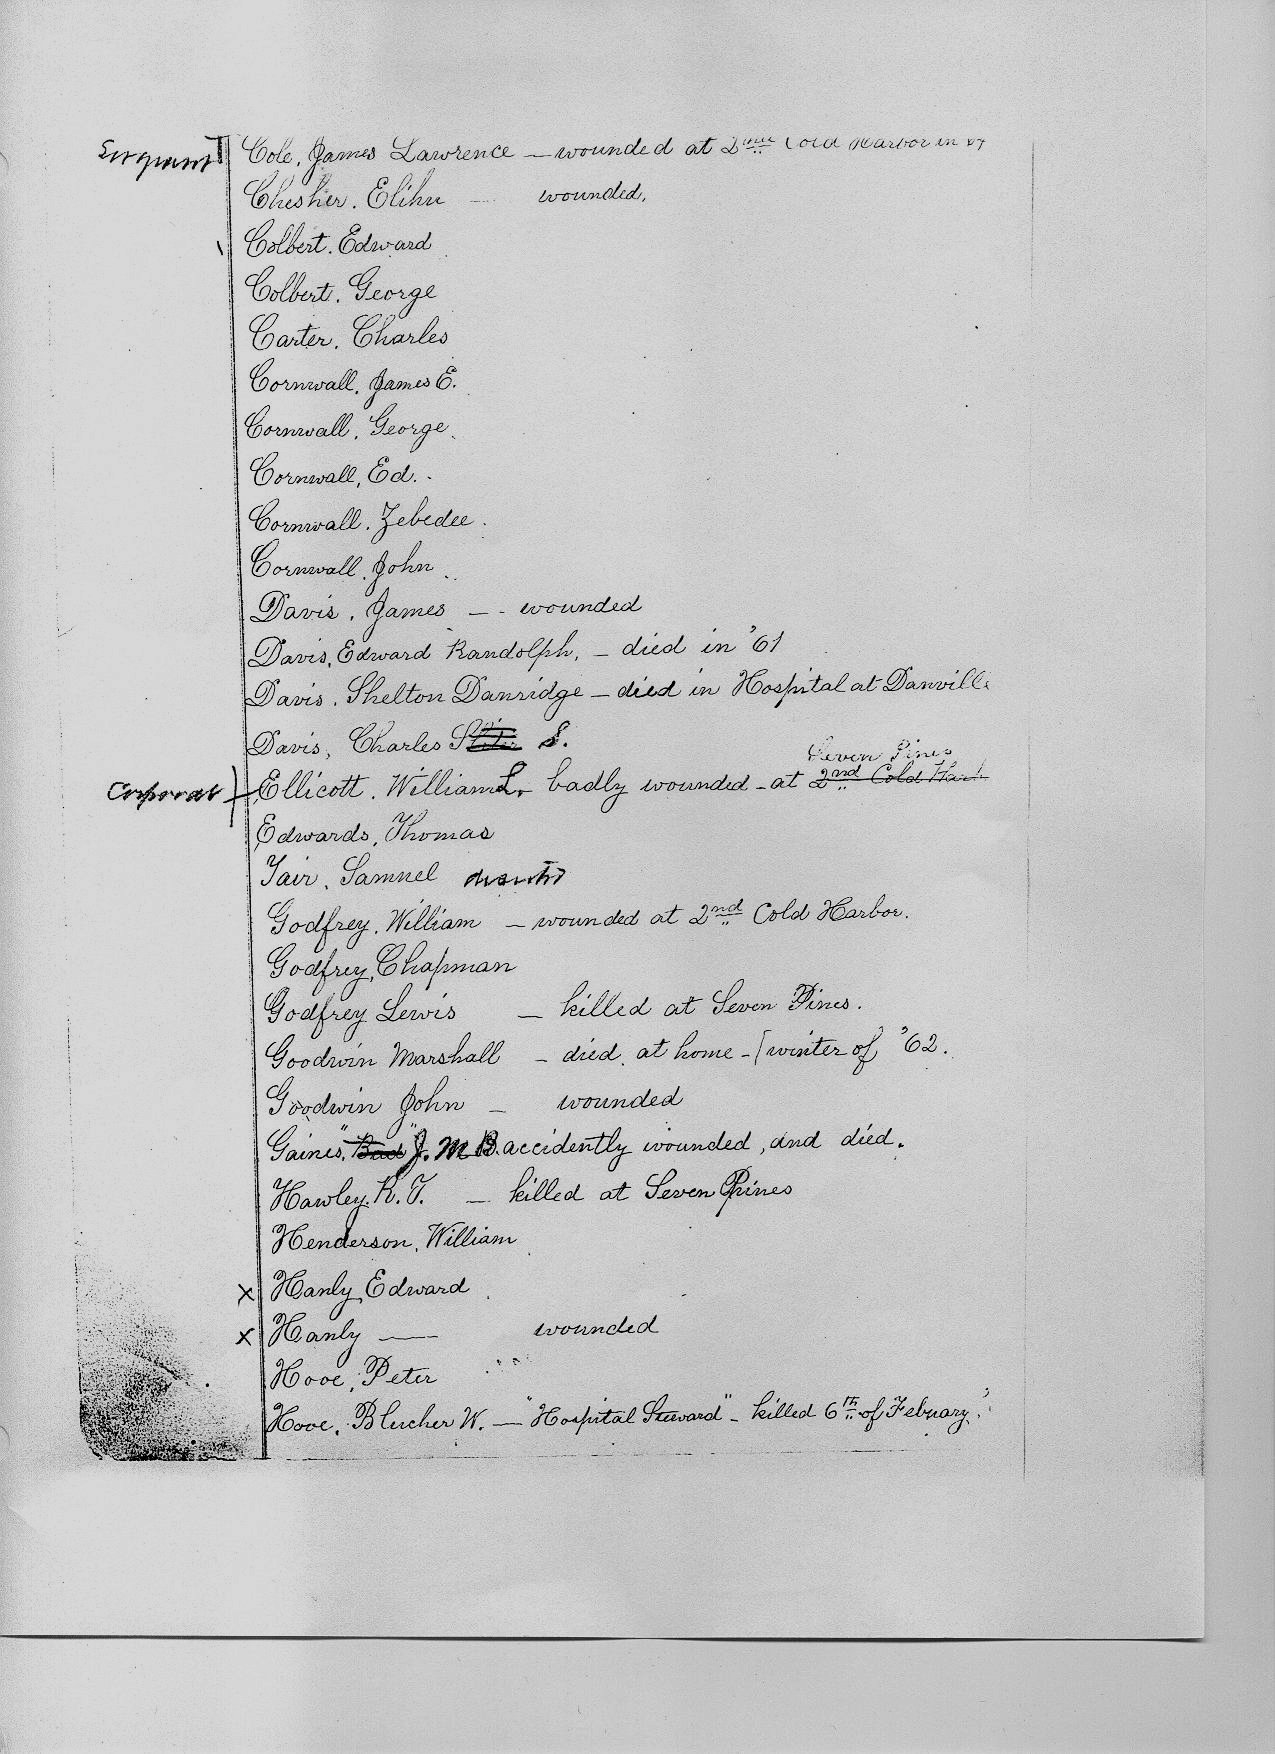 Sergeant Cole, James Lawrence — wounded at 2nd Cold Harbor in
Chesher. Elihu — wounded.
Colbert. Edward
Colbert. George
Carter. Charles
Cornwall. James E.
Cornwall. George.
Cornwall, Ed.
Cornwall. Zebedee.
Cornwall. John
Davis. James — wounded
Davis, Edward Randolph, — died in '61
Davis. Shelton Danridge — died in Hospital at Danville
Davis, Charles S.
Seven Pines
Corporal Ellicott. William L. badly wounded - at 2nd Cold Harb
Edwards, Thomas
Fair. Samuel
Godfrey. William — wounded at 2nd Cold Harbor.
Godfrey, Chapman
Godfrey Lewis — killed at Seven Pines.
Goodwin Marshall — died. at home - (winter of '62.
Goodwin John — wounded
Gaines. "Bud" J. M B. accidently wounded, and died.
Hawley. R. T. — killed at Seven Pines
Henderson, William
x Hanly, Edward
x Hanly — wounded
Hooe, Peter
Hooe, Blucher W. — "Hospital Steward" - killed 6th of Febuary.